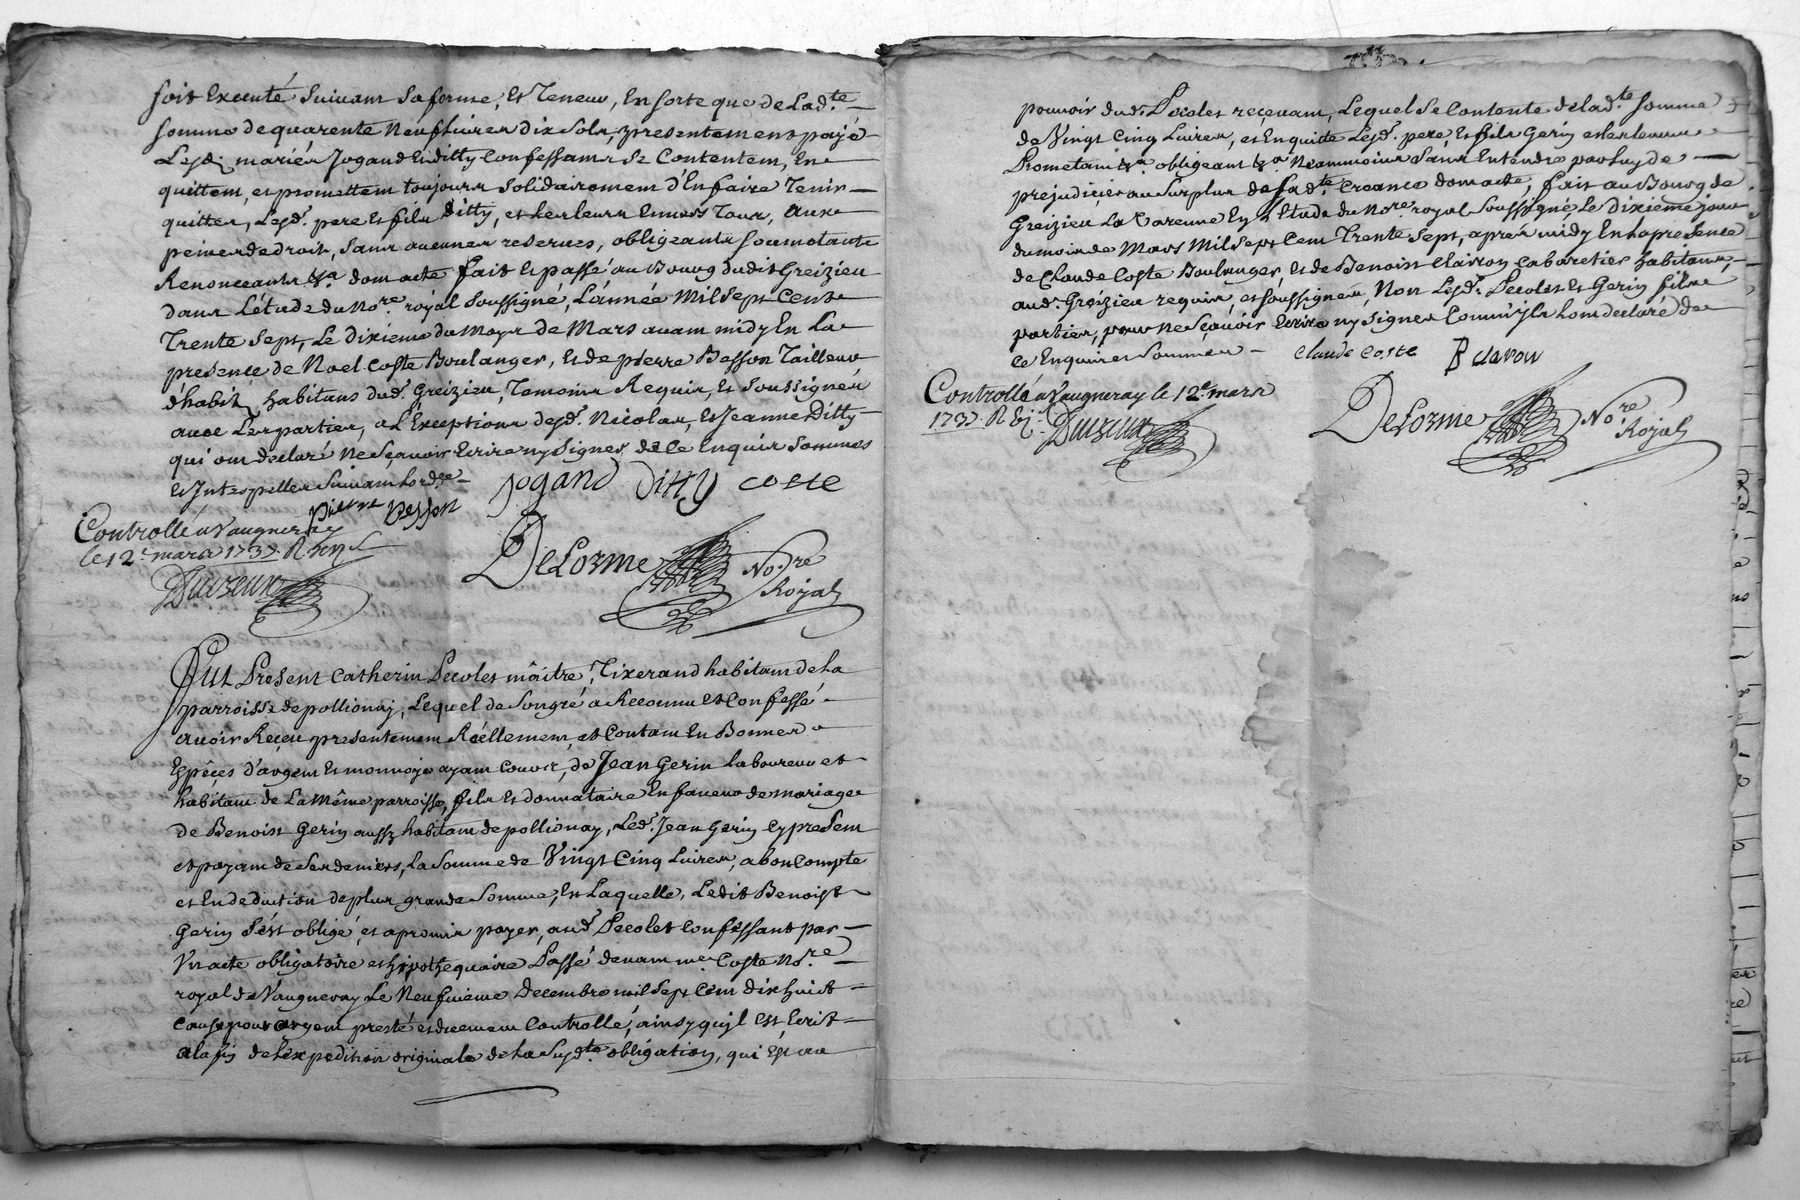 soit Executé suivant sa forme, Et Teneur, En sorte que de Lad.te
somme de quarente neuf Livres dix sols, presentement payé
Lesd. mariés Jogand Et ditty Confessants se Contentent, En
quittent, et promettent toujours solidairement d'En faire Tenir
quittes, Lesd.s pere et fils ditty, et les leurs Envers Tous, aux
peines de droit, sans aucunes reserves, obligeants soumetants
Renonceants &a. dont acte fait Et passé au Bourg dudit Greizieu
dans L'étude du No.re royal soussigné, L'année Mil sept Cents
Trente sept, Le dixieme du Moys de Mars avant midy En La
présence de Noel Coste Boulanger, Et de pierre Besson Tailleur
d'habits habitans dud. Greizieu, Temoins Requis, Et soussignés
avec Les parties, a L'Exceptions desd.s Nicolas, Et Jeanne Ditty
qui ont declaré ne sçavoir Ecrire ny signer de Ce Enquis sommés
Et Interpellés suivant Lord.ce
jogand Ditty coste
pierre Besson
Controllé a Vaugneray
le 12.e mars 1737. R
Delorme No.re Royal
Fut Present Catherin Pecolet mâitre Tixerand habitant de La
parroisse de pollionay, Lequel de Son gré a Reconnu et Confessé
avoir Reçeu presentement Réellement, et Contant En Bonnes
Espêçes d'argent Et monnoye ayant Couvrs, de Jean Gerin Laboureur et
habitant de La Même parroisse, fils Et donnataire En faveur de mariage
de Benoist Gerin aussy habitant de pollionay, Led.t Jean Gerin Cy present
et payant de Ses deniers, La Somme de Vingt Cinq Livres, a bon Compte
et En deduction de plus grande Somme, En Laquelle, Ledit Benoist
Gerin S'ést obligé, et a promis payer, aud.t Pecolet Confessant par
Vn acte obligatoire et hypothequaire Passé devant me. Coste No.re
royal de Vaugneray Le Neufvieme Decembre mil sept Cent dix huit
Cause pour argent presté et duement Controllé, ainsy quyl est Ecrit
a la fin de L'expedition originale de La susd.te obligation, qui Est au
pouvoir dud.t Pecolet reçevant, Lequel Se Contente de lad.te Somme
de Vingt Cinq Livres, et En quitte Lesd.s pere, Et fils Gerin et les leurs
Prometant &a obligeant &a Neammoins Sans Entendre par luy de
prejudicier au Surplus de Sad.te Creance dont acte, fait au Bourg de
Greizieu La Varenne En L'Etude du No.re royal Soussigné Le dixiême jour
du mois de Mars Mil sept Cent Trente Sept, aprés midy En La présence
de Claude Coste Boulanger, Et de Benoist Clavon Cabaretier habitans
aud. Greizieu requis, et Soussignés, Non Lesd.s Pecolet Et Gerin fils
parties, pour Ne Sçavoir Ecrire ny Signer Comm'yls L'ont declaré de
Ce Enquis et Sommés
claude coste B clavon
Controllé a Vaugneray le 12.e mars
1737. R
Delorme No.re Royal